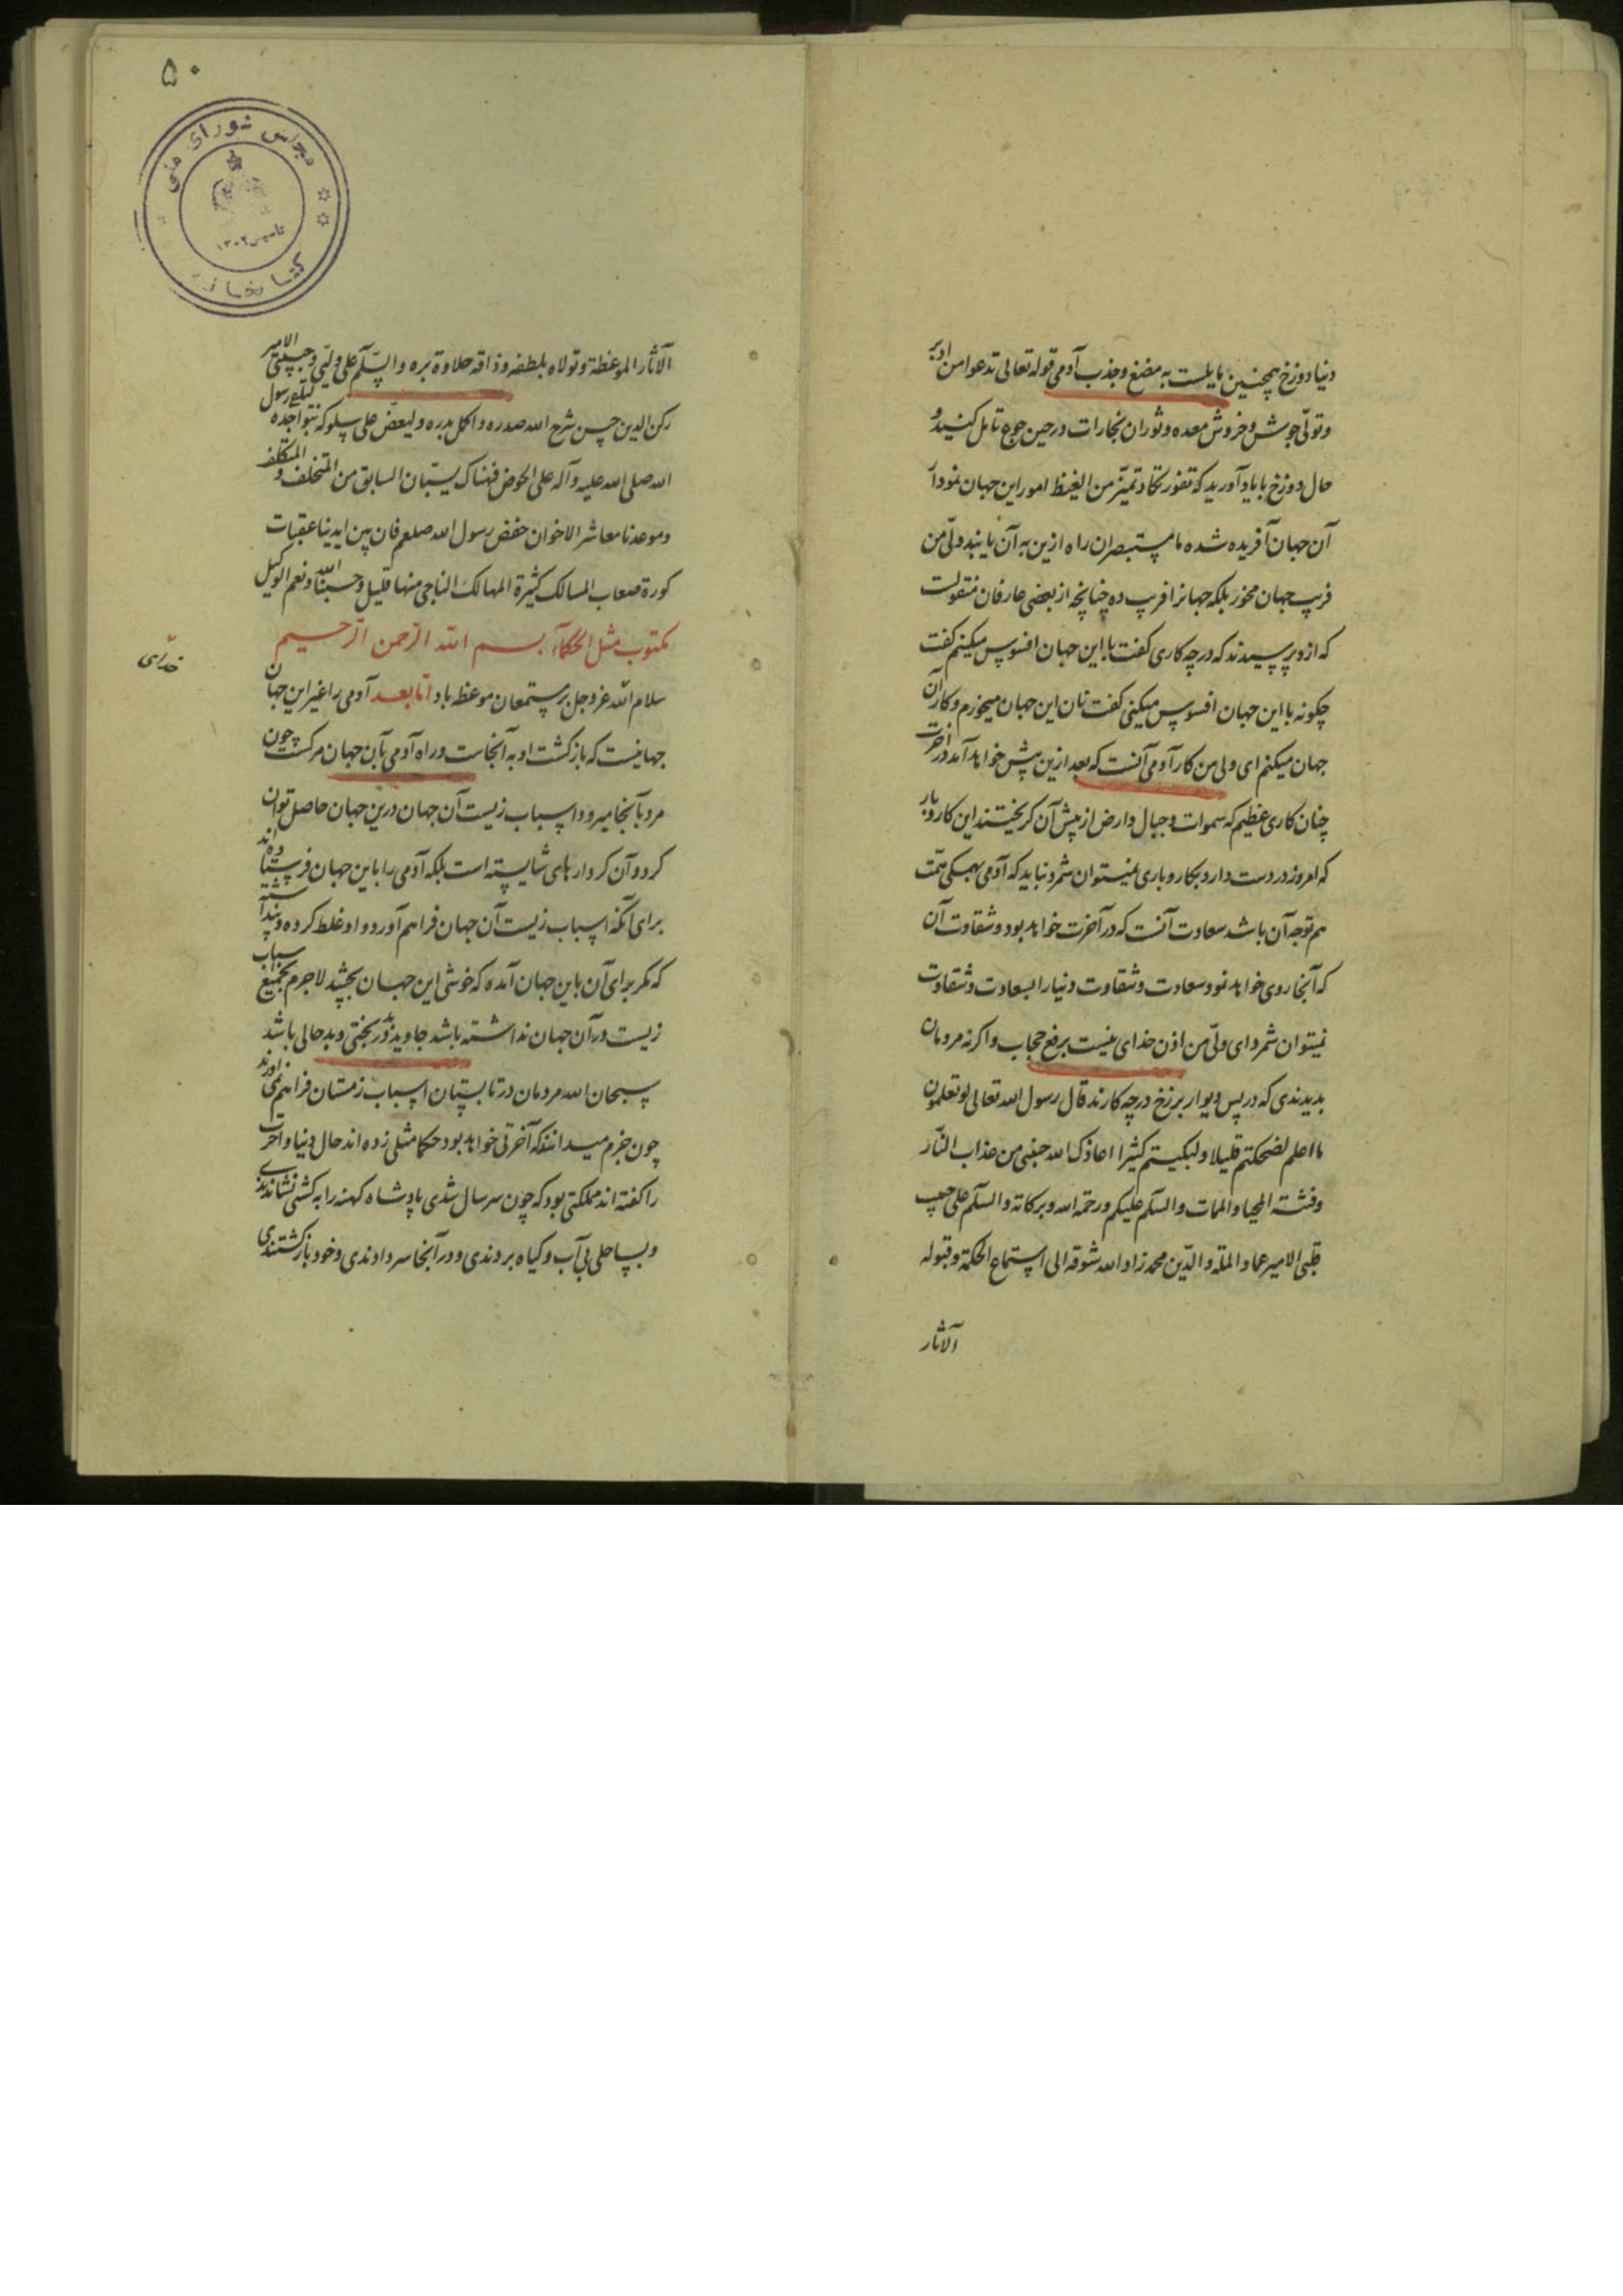 دنیا دوزخ همچنین مایلست به مضغ و جذب آدمی قوله تعالی تدعوا من ادبر
و تولّی جوش و خروش معده و ثوران بخارات در حین جوع تامل کنید و
حال دوزخ با یاد آورید که تفور تکاد تمیّز من الغیظ امور این جهان نمودار
آن جهان آفریده شده ما مستبصران راه ازین به آن یابند ولی من
فریب جهان مخور بلکه جهانرا فریب ده چنانچه از بعضی عارفان منقولست
که ازو پرسیدند که در چه کاری گفت با این جهان افسوس میکنم گفت
چگونه با این جهان افسوس میکنی گفت نان این جهان میخورم و کار آن
جهان میکنم ای ولی من کار آدمی آنست که بعد ازین پیش خواهد آمد در آخرت
چنان کاری عظیم که سموات و جبال و ارض از پیش آن گریختند این کار و بار
که امروز در دست دارد بکار و باری نمیتوان شمرد نباید که آدمی بهمگی همّت
هم توجه آن باشد سعادت آنست که در آخرت خواهد بود و شقاوت آن
که آنجا روی خواهد نمود سعادت و شقاوت دنیا را بسعادت و شقاوت
نمیتوان شمرد ای ولّی من اذن خدای نیست برفع حجاب و اگر نه مردمان
بدیدندی که در پس دیوار برزخ در چه کارند قال رسول الله تعالی لو تعلمون
ما اعلم لضحکتم قلیلا و لبکیتم کثیرا اعاذک الله حبیبی من عذاب النّار
و فتنة المحیا و الممات و السلم علیکم و رحمة الله و برکاته و السلم علی حبیب
قلبی الامیر عماد الملة و الدّین محمد زاد الله شوقه الی استماع الحکمة و قبوله
الآثار
۵۰
مجلس شورای ملی
تاسیس ۱۳۰۲
کتابخانه
الآثار الموعظة و تولاه بلطفه و ذاقه حلاوة بره و السّلم علی ولیّی و حبیبی الامیر
رکن الدین حسن شرح الله صدره و اکمل بدره و لیعضّ علی سلوکه بنواجذه لیلقی رسول
الله صلی الله علیه و آله علی الحوض فهناک یستبان السابق من المتخلف و المتکلف
و موعدنا معاشر الاخوان حفض رسول الله صلعم فان بین ایدینا عقبات
کورة صعاب المسالک کثیرة المهالک الناجی منها قلیل و حسبنا الله و نعم الوکیل
مکتوب مثل الحکماء بسم الله الرّحمن الرّحیم
خدای
سلام الله عز و جل بر مستمعان موعظه باد امّا بعد آدمی را غیر این جهان
جهانیست که بازگشت او به آنجاست و راه آدمی بآن جهان مرگست چون
مرد بآنجا میرود اسباب زیست آن جهان درین جهان حاصل توان
کرد و آن کردارهای شایسته است بلکه آدمی را باین جهان فرستاده اند
برای آنکه اسباب زیست آن جهان فراهم آورد و او غلط کرده و پنداشته
که مگر برای آن باین جهان آمده که خوشی این جهان بچشد لاجرم بجمیع اسباب
زیست در آن جهان نداشته باشد جاوید در بدبختی و بدحالی باشد
سبحان الله مردمان در تابستان اسباب زمستان فراهم می آورند
چون جزم میدانند که آخرتی خواهد بود حکما مثلی زده اند حال دنیا و آخرت
را گفته اند مملکتی بود که چون سر سال شدی پادشاه کهنه را به کشتی نشاندندی
و بساحلی بی آب و گیاه بردندی و در آنجا سر دادندی و خود بازگشتندی